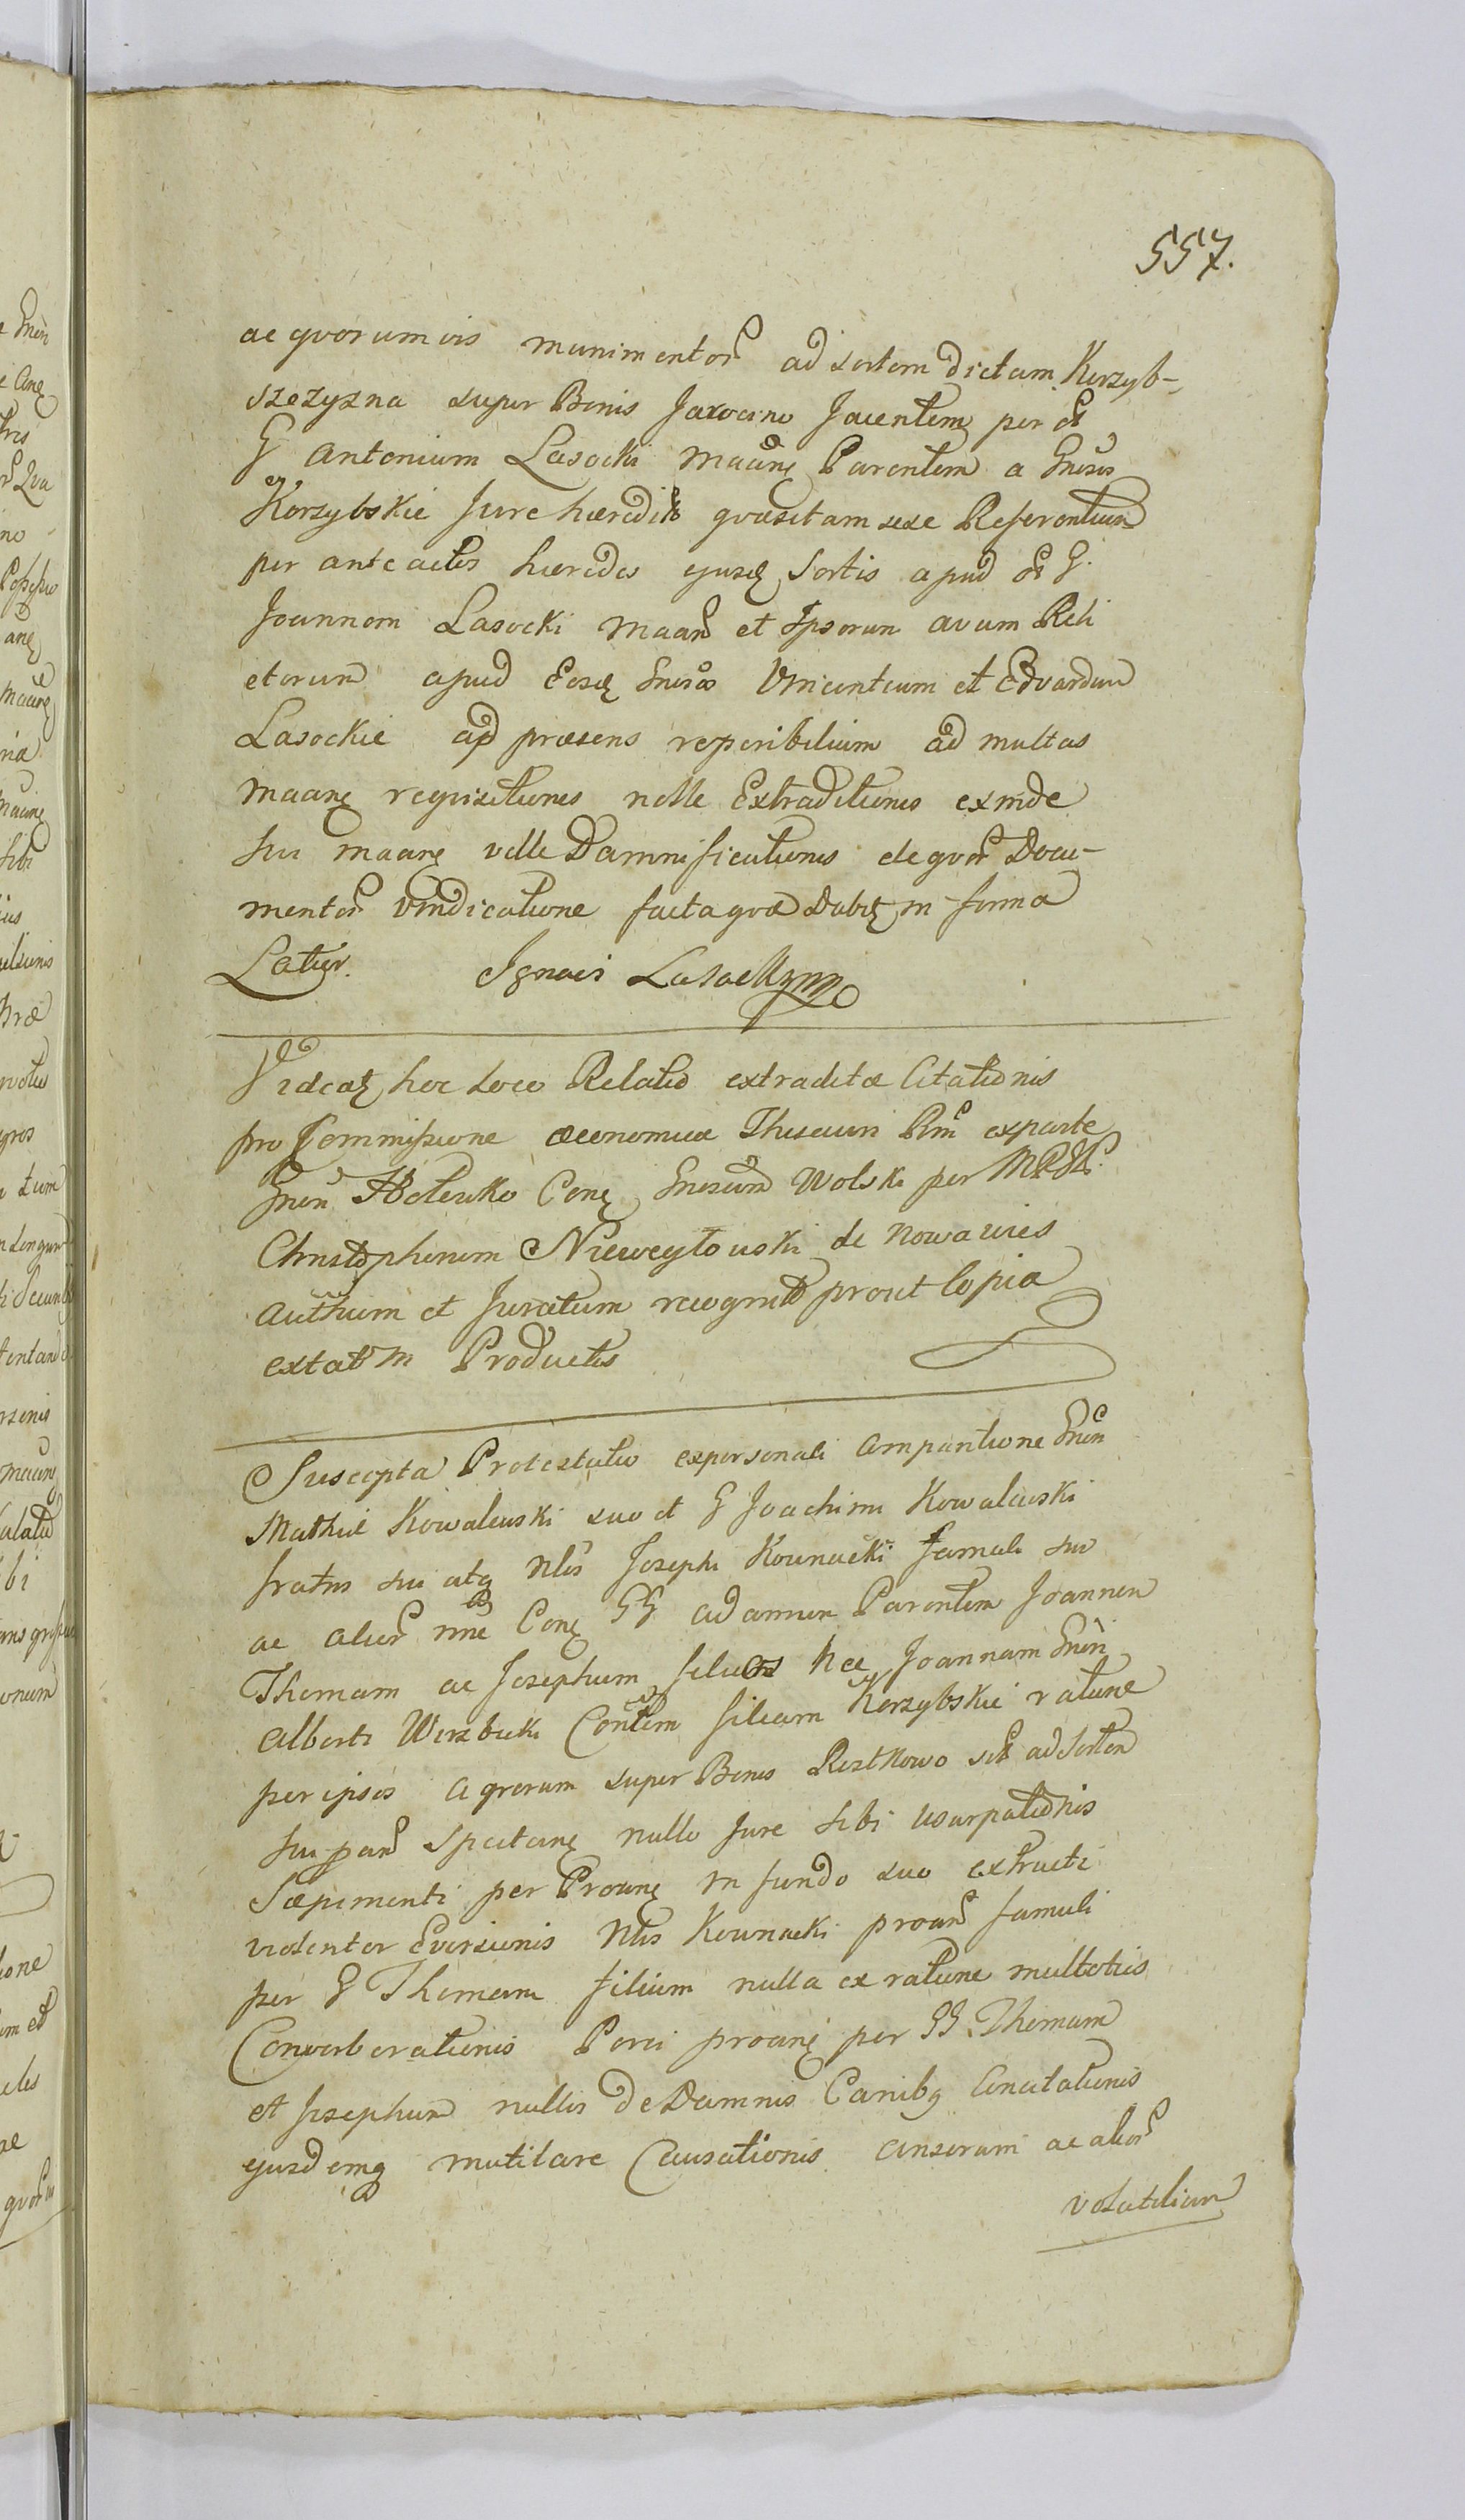 557.
ac qvorumvis munimentor ad sortem dictam Korzyb-
szczyzna super Bonis Jarocino Jacentem per
G Antonium Lasocki Maanę Parentem a Gnesis
Korzybskie Jure hæredit qvæsitam sese Referentium
per anteactos hæredes ejusd Sortis apud G.
Joannem Lasocki Maan et Ipsorum avum Reli
ctorum apud Eosd Gnesos Vincentium et Edvardum
Lasockie ad præsens reperibilium ad multas
Maanę reqvisitiones nolle Extraditionis exinde
sui maanę velle Damnificationis de qvor Docu-
mentor vindicatione facta qvæ Dabit in forma
Latior. Ignaci Lasocki mp
Videat hoc loco Relatio extraditæ Citationis
pro Commissione œconomica Thesauri Rni ex parte
Gnen Holewko Conę Gnesum Wolski per
Christophorum Niewegłowski de Nowawies
Authum et Juratum recognito prout Copia
extat in Productis
Suscepta Protestatio ex personali Comparitione Gnen
Mathiæ Kowalewski suo et G Joachimi Kowalewski
fratris sui atq Nlis Josephi Kownacki famuli sui
ac alior nne Conę GG Adamum Parentem Joannem
Thomam ac Josephum filios nec Joannam Gnen
Alberti Wierzbicki Contem filiam Korzybskie ratione
per ipsos agrorum super Bonis Rostkowo ad Sortem
sui pan Spectanę nullo Jure sibi usurpationis
Sæpimenti per Proanę in fundo suo extructi
violenter Eversionis Nlis Kownacki proan famuli
per G Thomam filium nulla ex ratione multoties
Converberationis Porci proanę per GG. Thomam
et Josephum nullis de Damnis Canibq Concitationis
ejusdemq mutilare Causationis anserum ac alior
volatilium